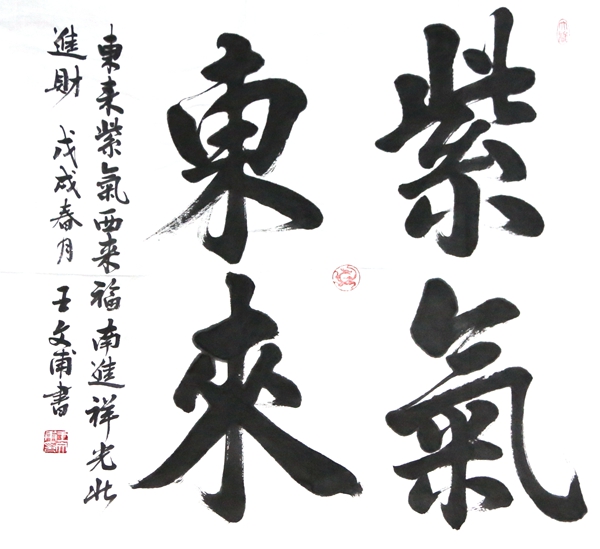 紫氣
東來
東来紫氣西来福南進祥光北
進財 戊戌春月 王文甫書